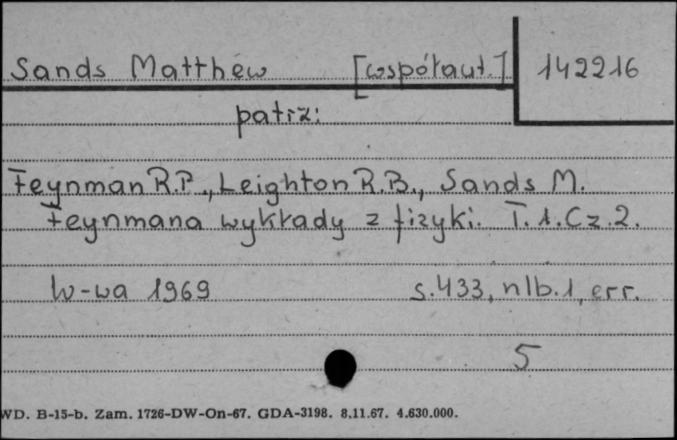 Sands Matthew [współaut.] 142216
patrz:
Feynman R.P., Leighton R.B., Sands M.
Feynmana wykłady z fizyki. T.1.Cz.2.
W-wa 1969 s.433, nlb.1, err.
5
WD. B-15-b. Zam. 1726-DW-On-67. GDA-3198. 8.11.67. 4.630.000.